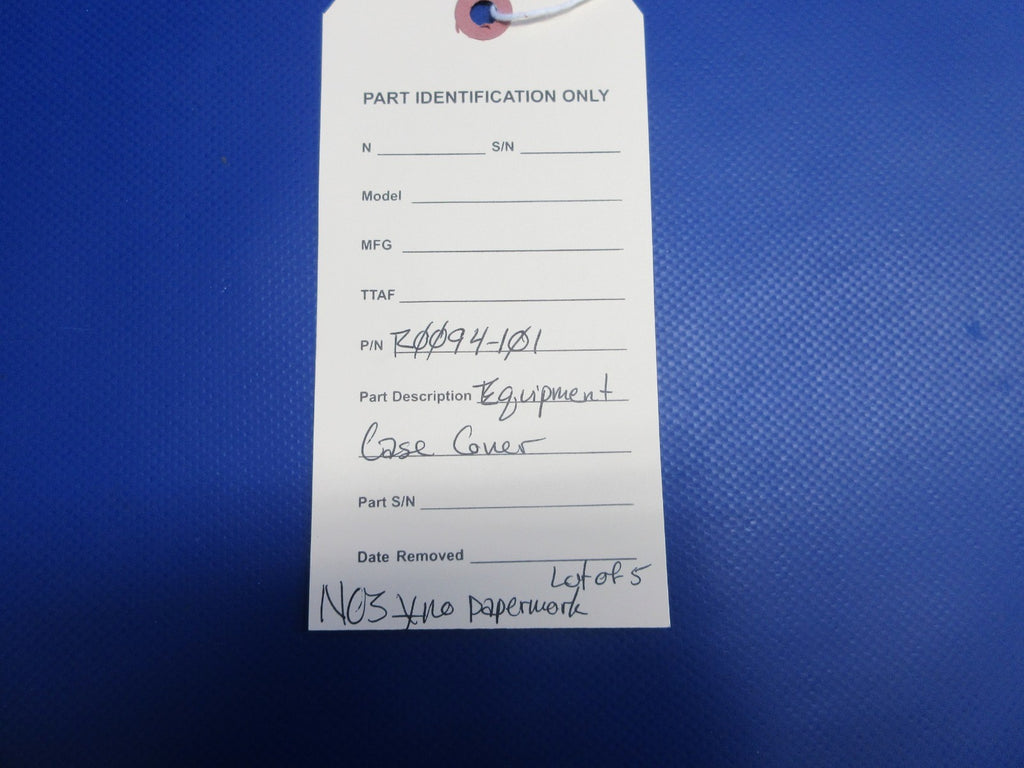 PART IDENTIFICATION ONLY
N S/N
Model
MFG
TTAF
P/N R0094-101
Part Description Equipment
Case Cover
Part S/N
Date Removed
Lot of 5
NOS no paperwork